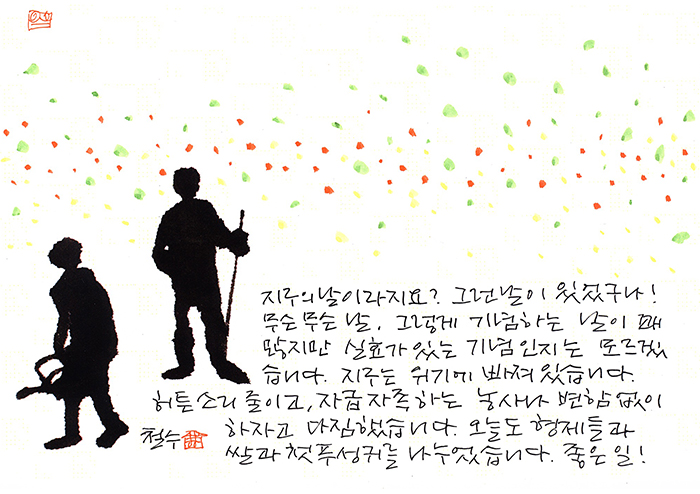 지구의날이라지요? 그런날이 있었구나!
무슨무슨날, 그렇게 기념하는 날이 꽤
많지만 실효가 있는 기념인지는 모르겠
습니다. 지구는 위기에 빠져있습니다.
허튼소리 줄이고, 자급자족하는 농사나 변함없이
하자고 다짐했습니다. 오늘도 형제들과
쌀과 첫푸성귀를 나누었습니다. 좋은일!
철수